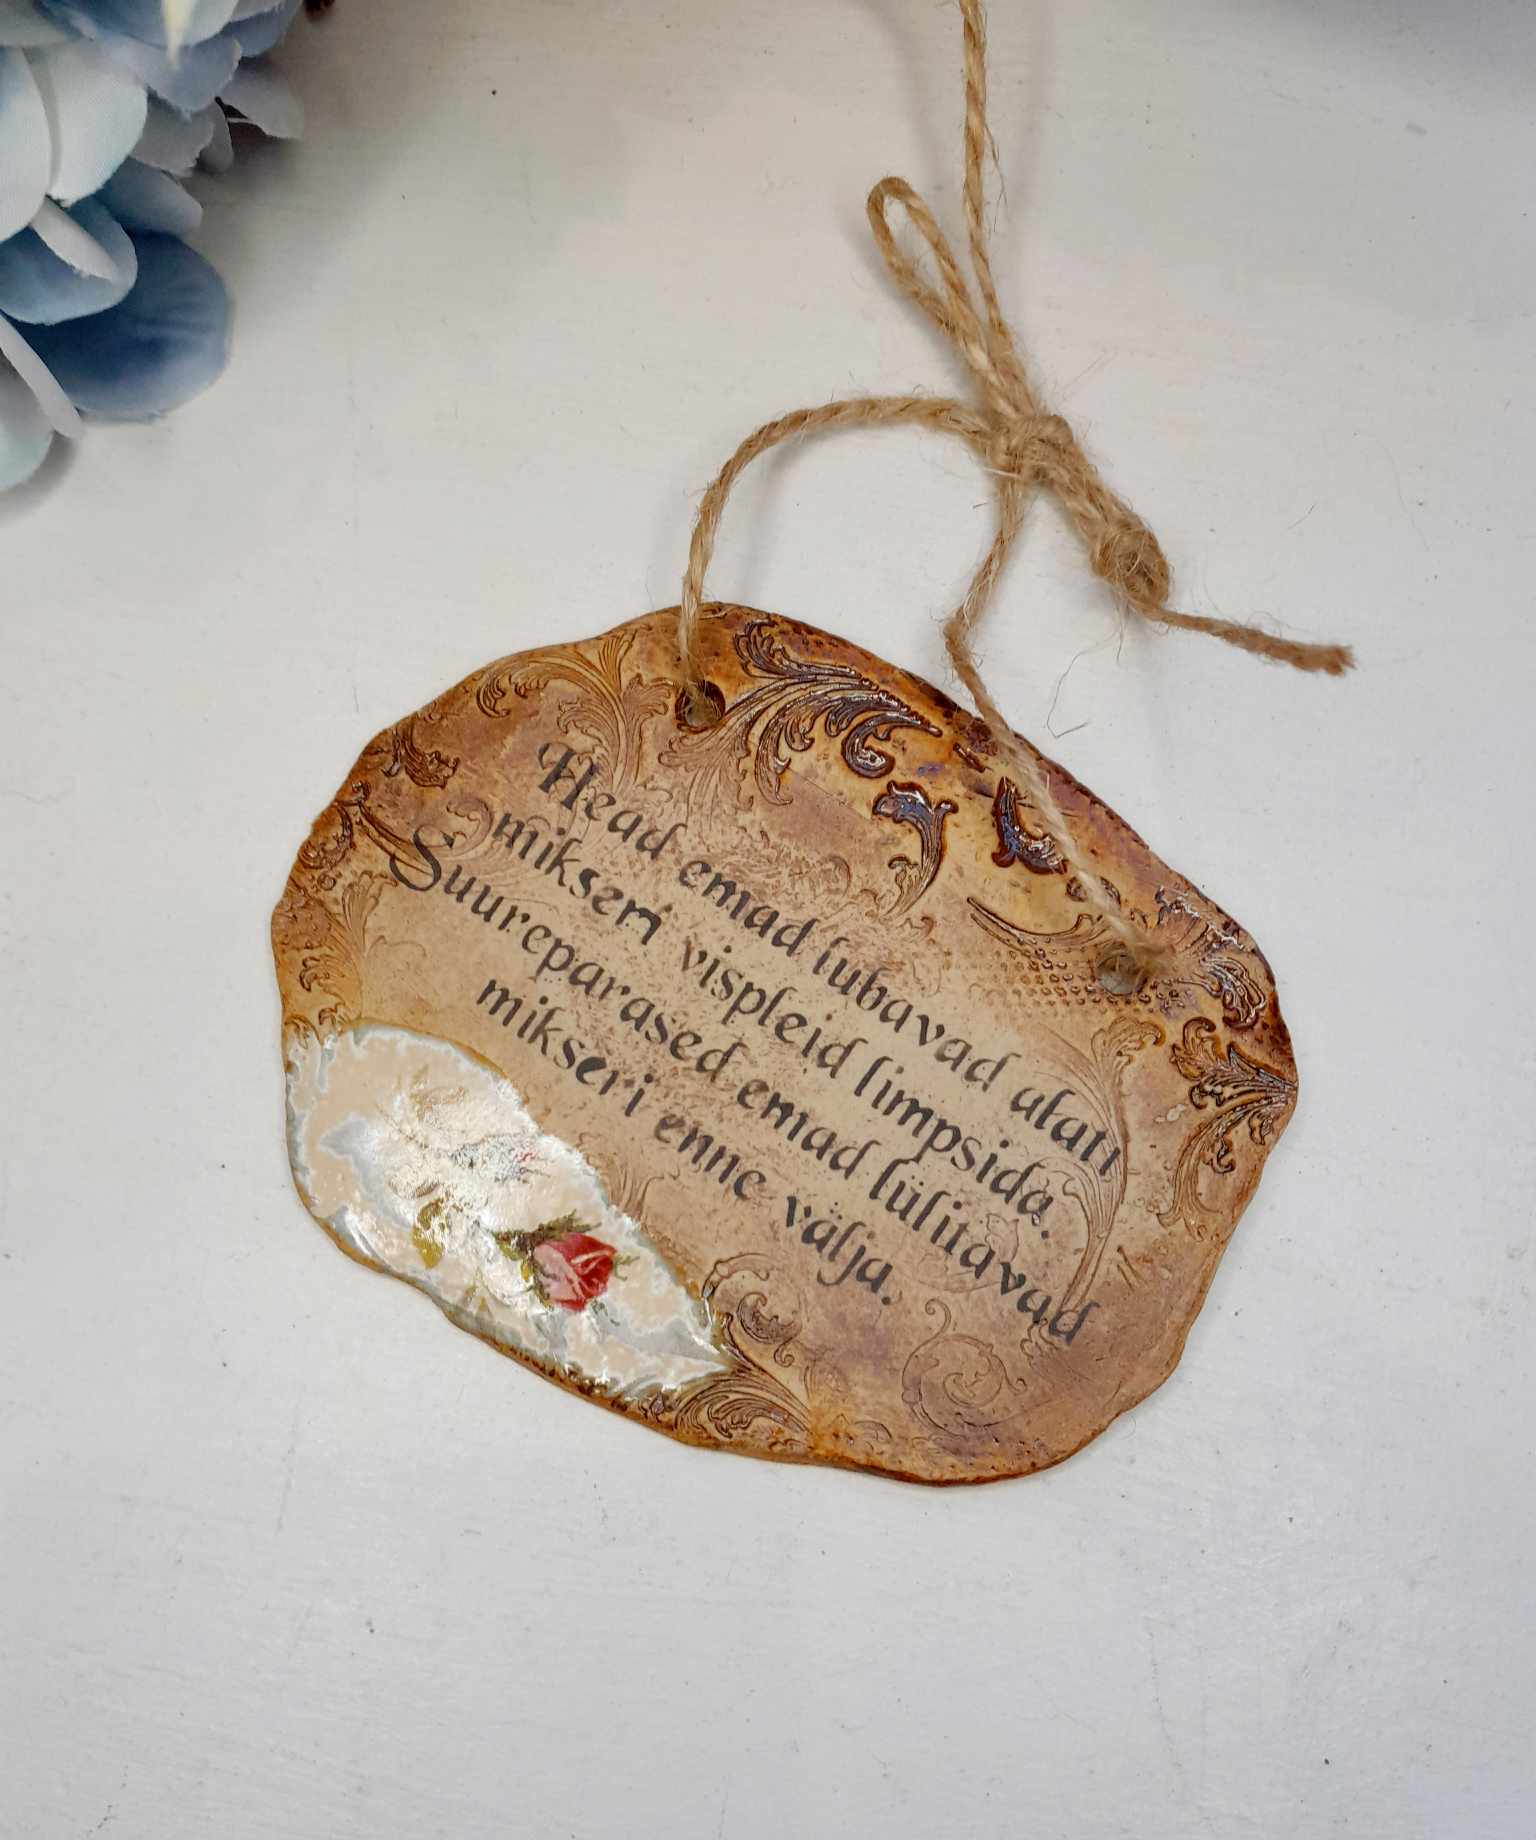 Head emad lubavad alati
mikseri vispleid limpsida.
Suurepärased emad lülitavad
mikseri enne välja.